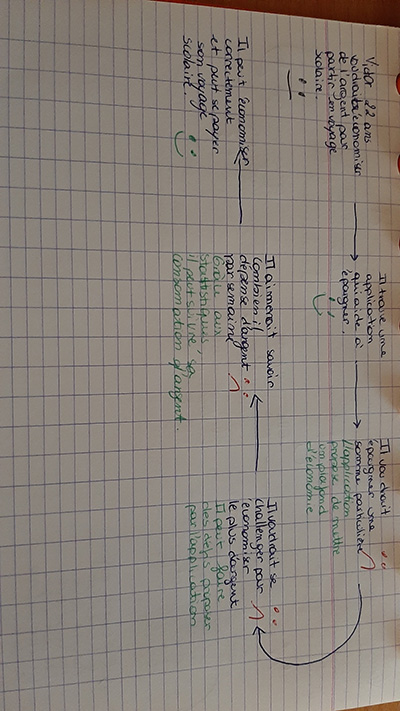 Victor 22 ans
voudrait économiser
de l'argent par
partir en voyage
scolaire.
Il trouve une
application
qui aide à
épargner.
Il voudrait
épargner une
somme particulière
L'application
propose de mettre
un plafond
d'économie
Il voudrait se
challenger par
économiser
le plus d'argent
Il peut faire
des défis proposer
par l'application
Il aimerait savoir
combien il
dépense d'argent
par semaine
Grâce aux
statistiques,
il peut suivre sa
consomation d'argent.
Il peut économiser
correctement
et peut se payer
son voyage
scolaire.